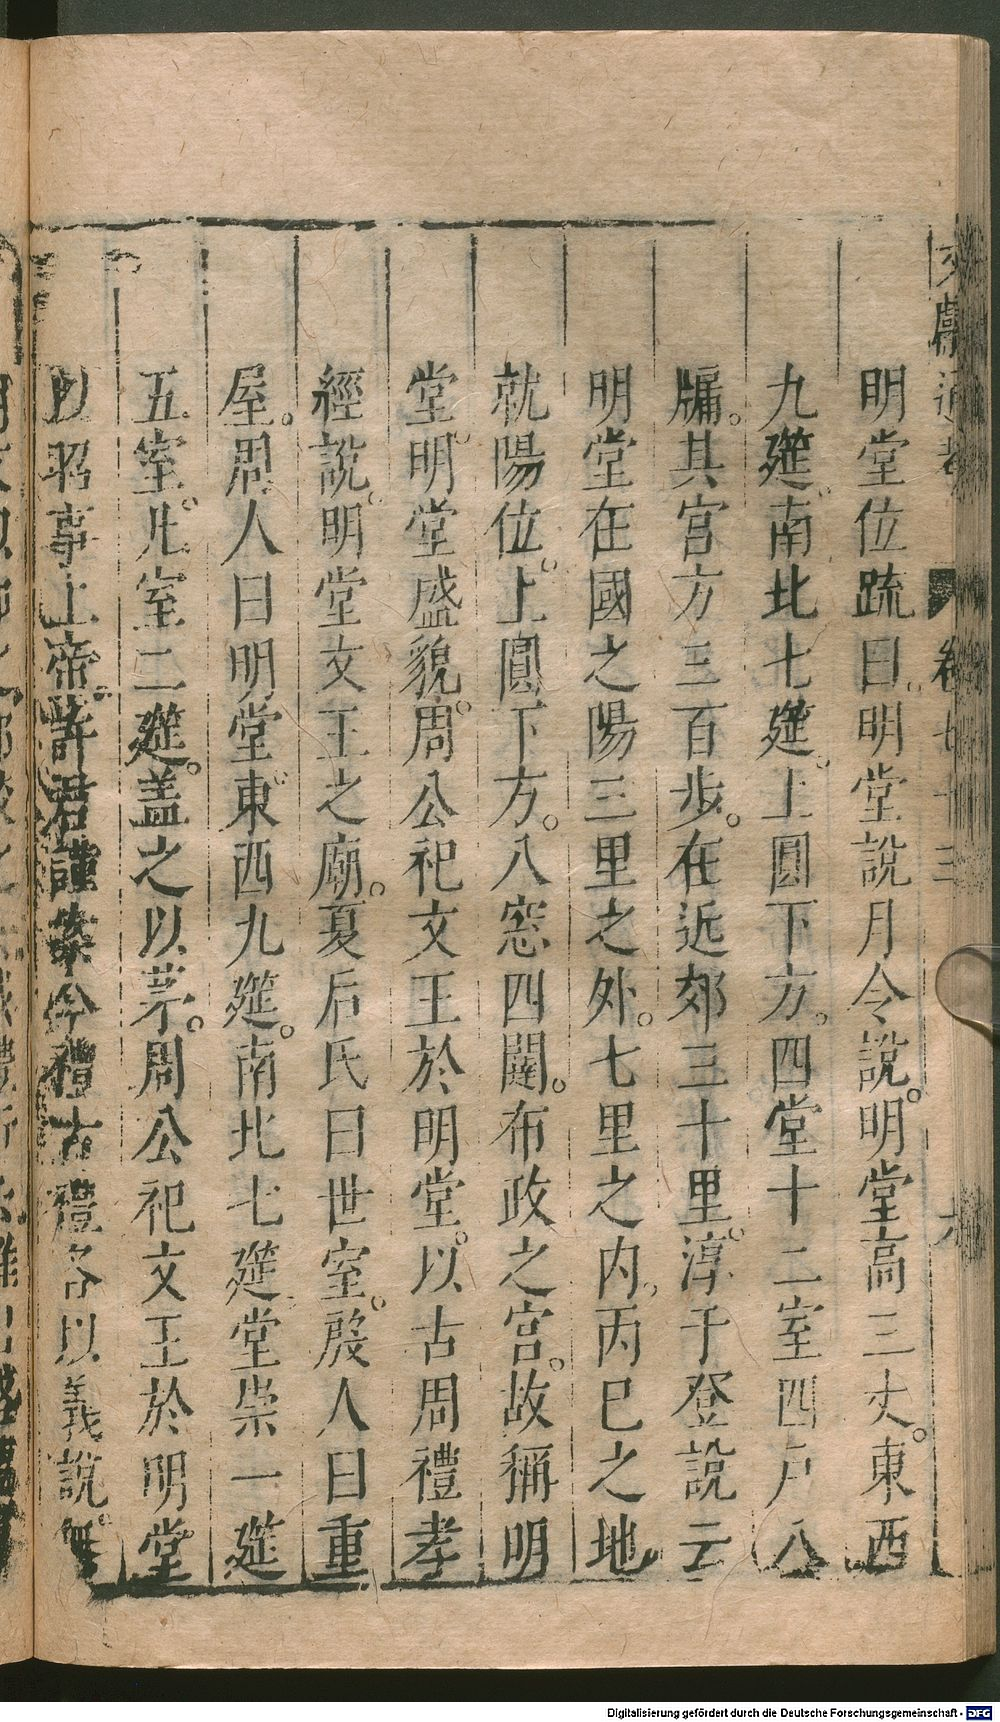 文獻通考 卷七十三 六
明堂位疏曰。明堂說月令說。明堂高三丈。東西
九筵。南北七筵。上圓下方。四堂十二室四戶八
牖。其宮方三百步。在近郊三十里。淳于登說云
明堂在國之陽三里之外。七里之內。丙巳之地
就陽位。上圓下方。八窓四闥。布政之宮。故稱明
堂。明堂盛貌。周公祀文王於明堂。以古周禮孝
經說。明堂文王之廟。夏后氏曰世室。殷人曰重
屋。周人曰明堂。東西九筵。南北七筵堂崇一筵
五室。凡室二筵。盖之以茅。周公祀文王於明堂
以昭事上帝。許君謹案今禮古禮各以義說。無
Digitalisierung gefördert durch die Deutsche Forschungsgemeinschaft - DFG